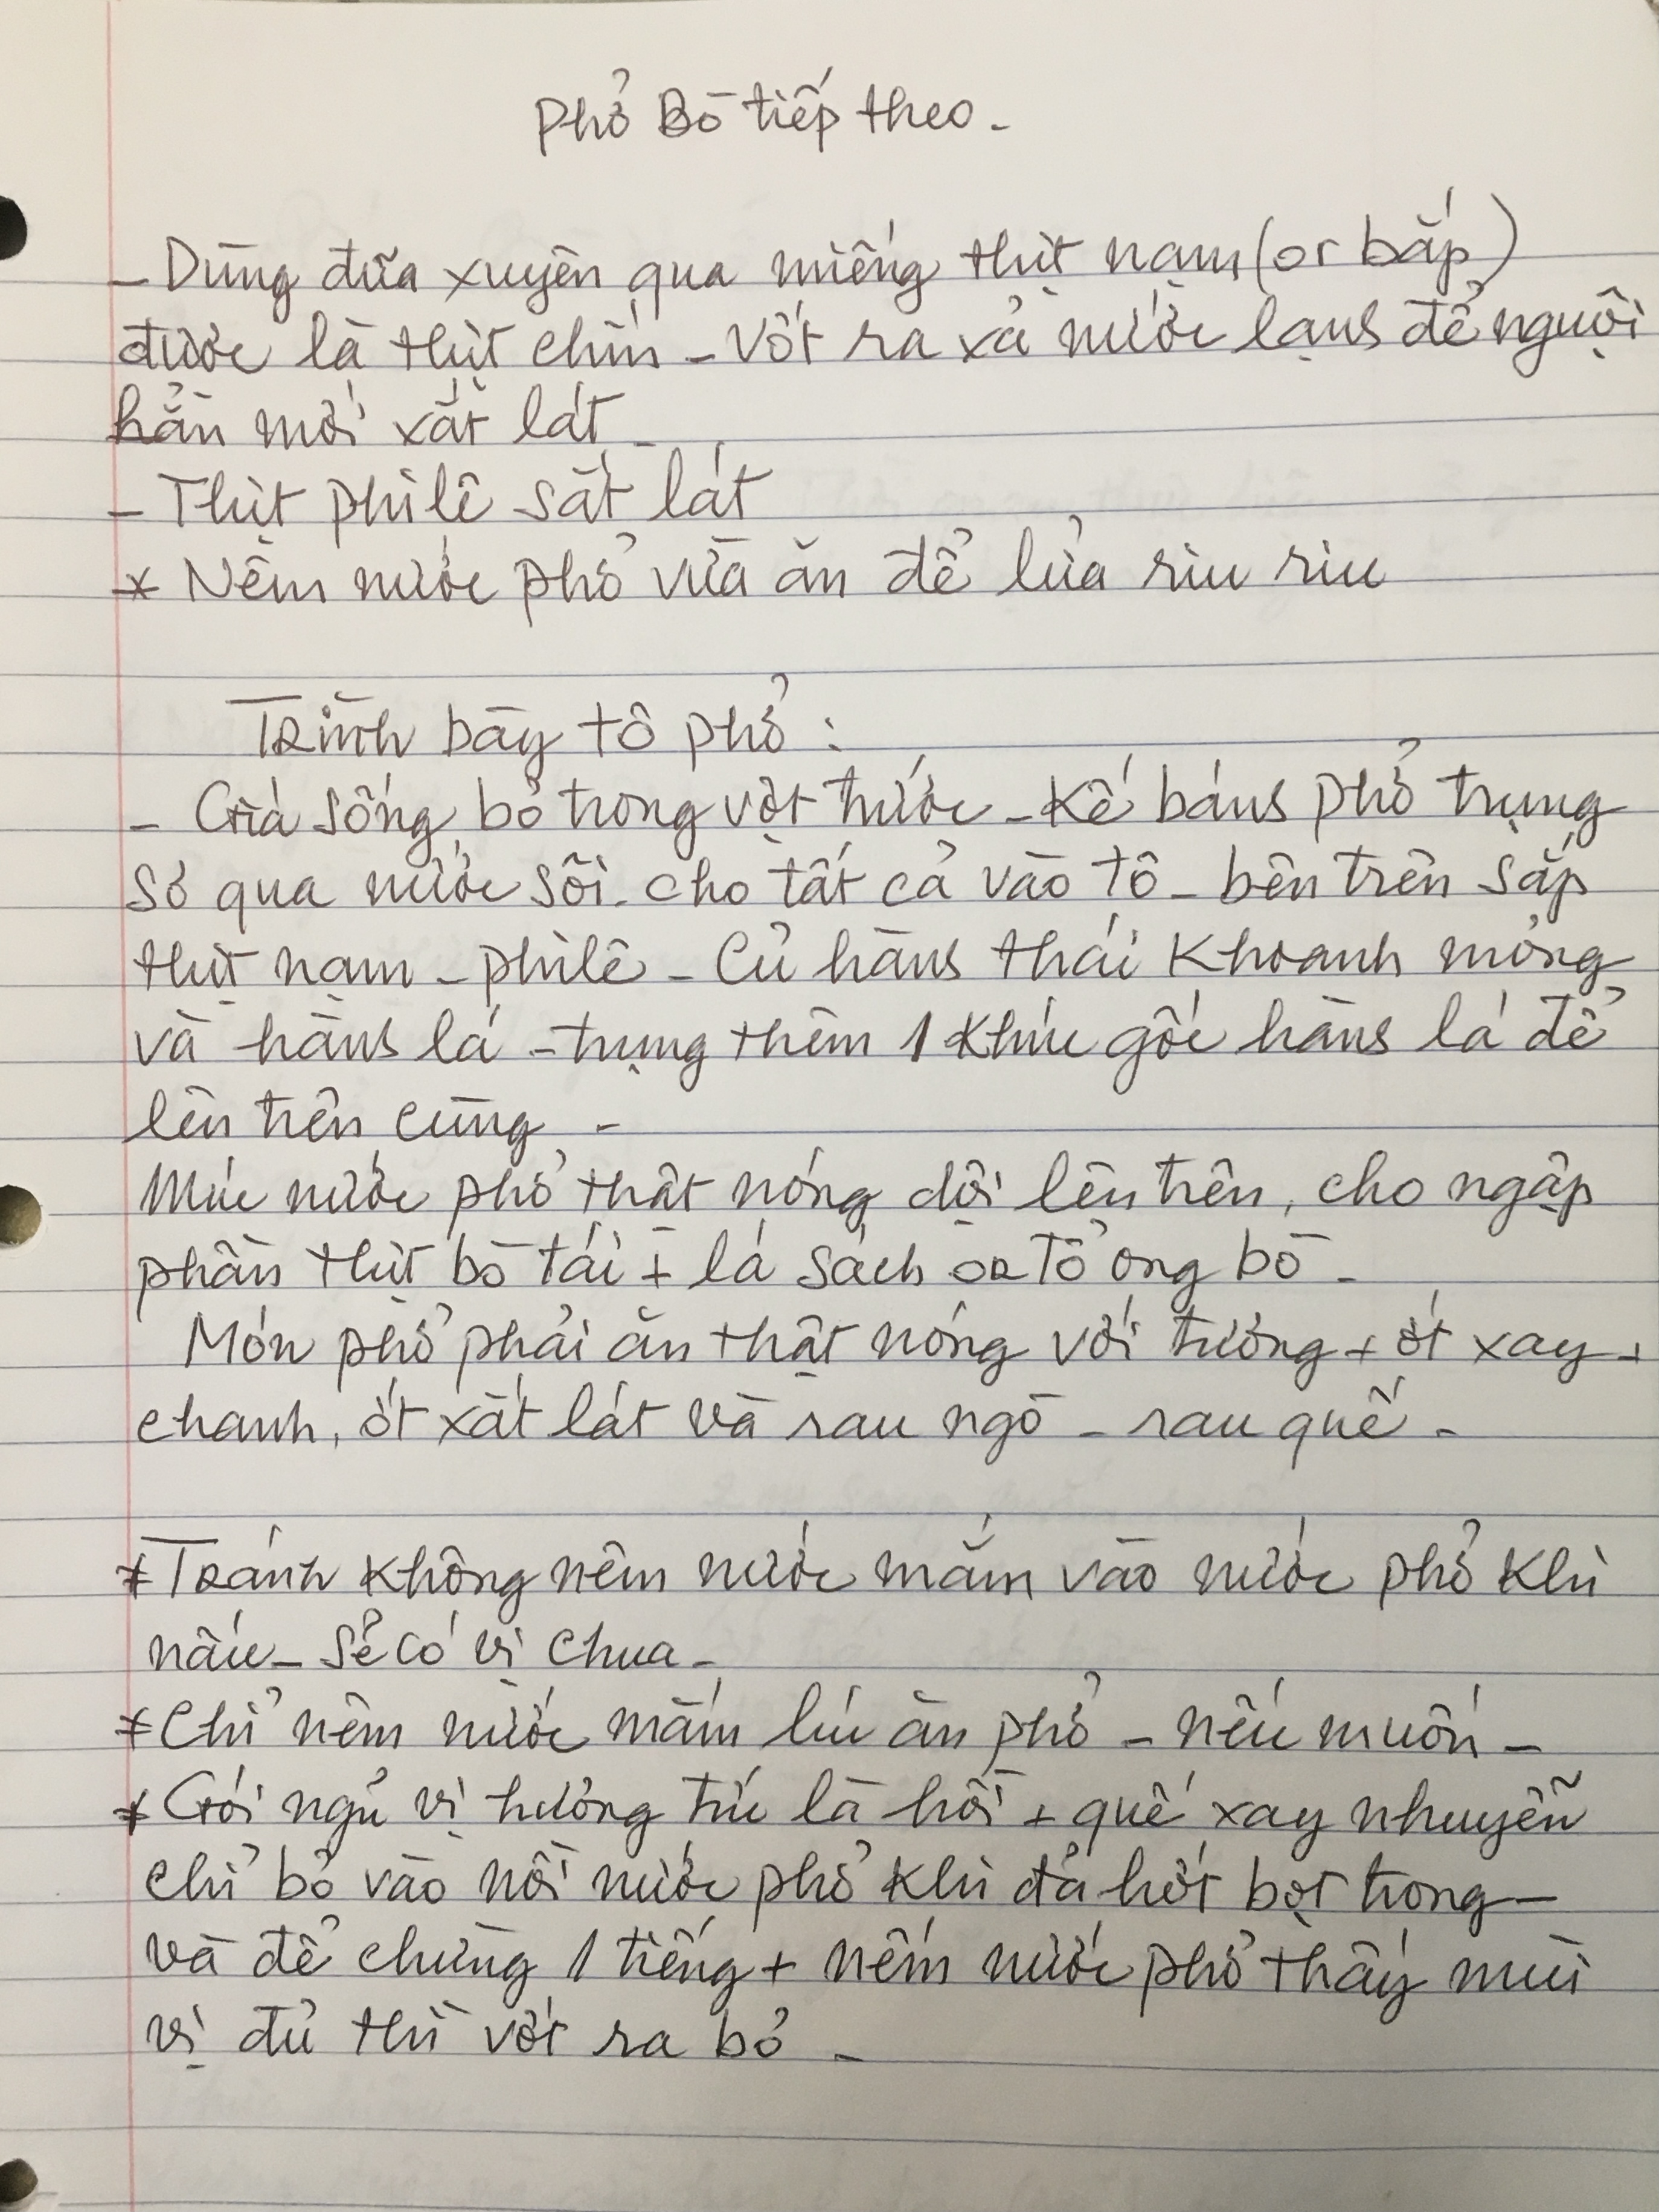 Phở Bò tiếp theo -
- Dùng đũa xuyên qua miếng thịt nạm (or bắp)
được là thịt chín - Vớt ra xả nước lạnh để nguội
hẳn mới xắt lát -
- Thịt philê sắt lát
* Nêm nước phở vừa ăn để lửa riu riu
Trình bày tô phở :
- Giá sống bỏ trong vợt trước - kế bánh phở trụng
sơ qua nước sôi. cho tất cả vào tô - bên trên sắp
thịt nạm - philê - Củ hành thái khoanh mỏng
và hành lá - trụng thêm 1 khúc gốc hành lá để
lên trên cùng -
Múc nước phở thật nóng dội lên trên, cho ngập
phần thịt bò tái + lá sách or Tổ ong bò -
Món phở phải ăn thật nóng với tương + ớt xay +
chanh, ớt xắt lát và rau ngò - rau quế -
* Tránh không nêm nước mắm vào nước phở khi
nấu - sẽ có vị chua -
* Chỉ nêm nước mắm lúc ăn phở - nếu muốn -
* Gói ngủ vị hương tức là hồi + quế xay nhuyễn
chỉ bỏ vào nồi nước phở khi đả hớt bọt trong -
và để chừng 1 tiếng + nếm nước phở thấy mùi
vị đủ thì vớt ra bỏ -